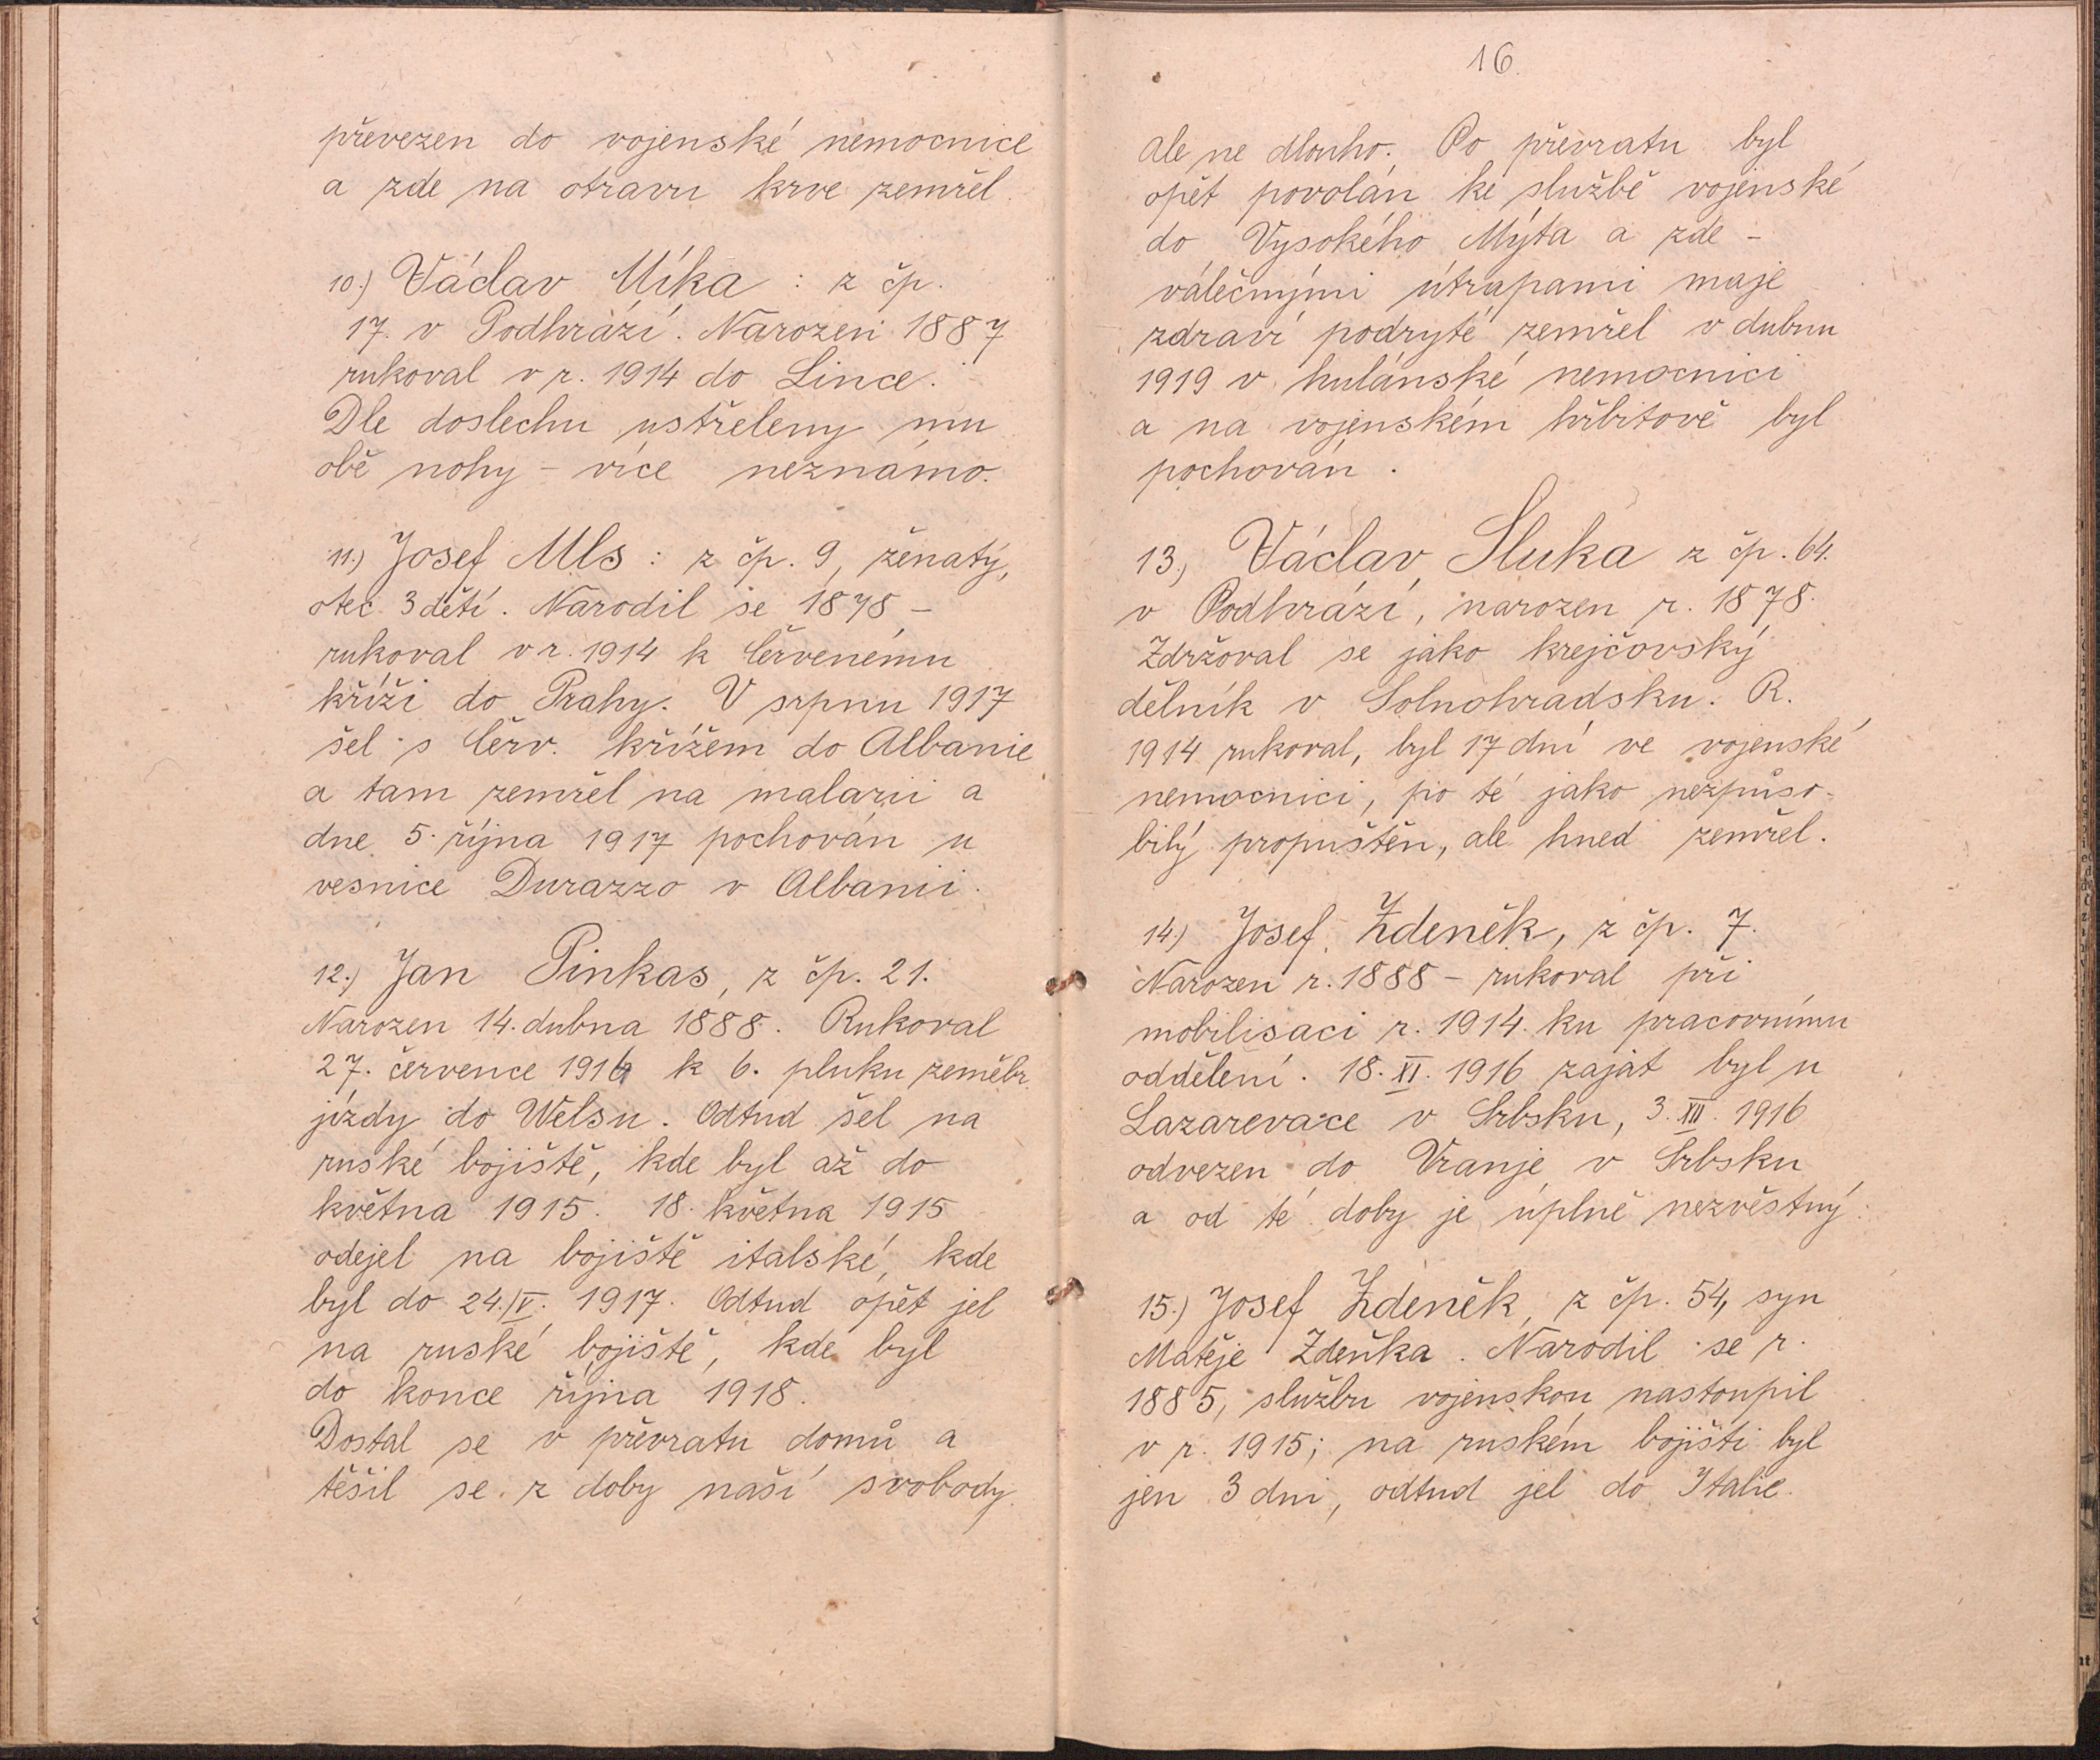 převezen do vojenské nemocnice
a zde na otravu krve zemřel.
10.) Václav Míka : z čp.
17. v Podhrází. Narozen 1887
rukoval v r. 1914 do Lince.
Dle doslechu ustřeleny mu
obě nohy – více neznámo.
11.) Josef Mls : z čp. 9, ženatý,
otec 3 dětí. Narodil se 1878 –
rukoval v r. 1914 k červenému
kříži do Prahy. V srpnu 1917
šel s červ. křížem do Albanie
a tam zemřel na malarii a
dne 5. října 1917 pochován u
vesnice Durazzo v Albanii.
12.) Jan Pinkas, z čp. 21.
Narozen 14. dubna 1888. Rukoval
27. července 1914 k 6. pluku zeměbr.
jízdy do Welsu. Odtud šel na
ruské bojiště, kde byl až do
května 1915. 18. května 1915
odejel na bojiště italské, kde
byl do 24./V. 1917. Odtud opět jel
na ruské bojiště, kde byl
do konce října 1918.
Dostal se v převratu domů a
těšil se z doby naší svobody.
16.
ale ne dlouho. Po převratu byl
opět povolán ke službě vojenské
do Vysokého Mýta a zde –
válečnými útrapami maje
zdraví podryté zemřel v dubnu
1919 v hulánské nemocnici
a na vojenském hřbitově byl
pochován.
13.) Václav Sluka z čp. 64.
v Podhrází, narozen r. 1878.
Zdržoval se jako krejčovský
dělník v Solnohradsku. R.
1914 rukoval, byl 17 dní ve vojenské
nemocnici, po té jako nezpůso-
bilý propuštěn, ale hned zemřel.
14.) Josef Zdeněk, z čp. 7.
Narozen r. 1888 – rukoval při
mobilisaci r. 1914. ku pracovnímu
oddělení. 18. XI. 1916 zajat byl u
Lazarevace v Srbsku, 3. XII. 1916
odvezen do Vranje v Srbsku
a od té doby je úplně nezvěstný.
15.) Josef Zdeněk, z čp. 54, syn
Matěje Zdeňka. Narodil se r.
1885, službu vojenskou nastoupil
v r. 1915; na ruském bojišti byl
jen 3 dni, odtud jel do Italie.